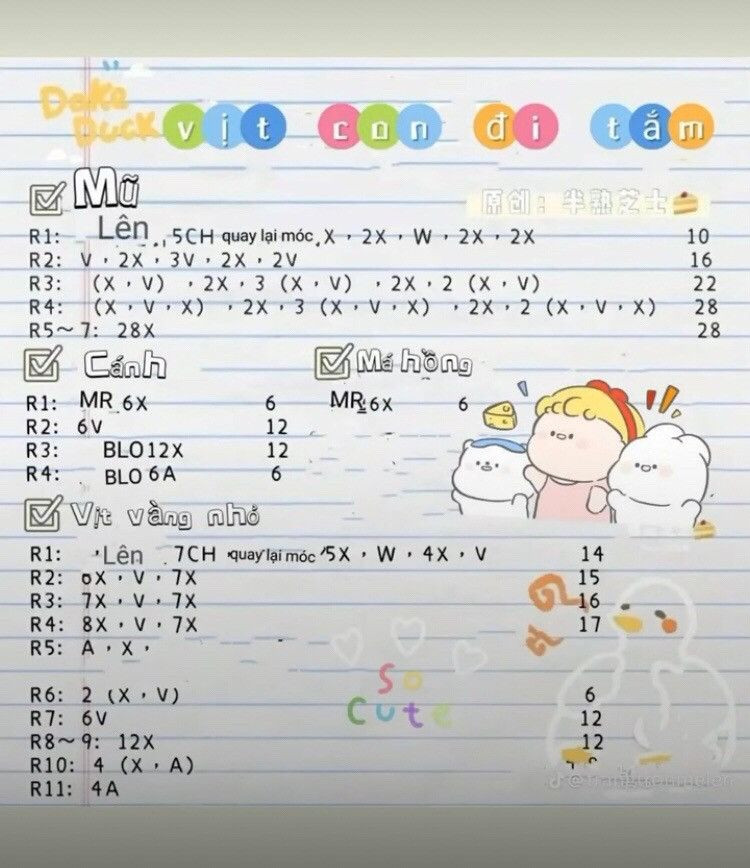 Dake
Duck
vịt con đi tắm
Mũ
原创：半熟芝士
R1: Lên 5CH quay lại móc, X , 2X , W , 2X , 2X 10
R2: V , 2X , 3V , 2X , 2V 16
R3: (X , V) , 2X , 3 (X , V) , 2X , 2 (X , V) 22
R4: (X , V , X) , 2X , 3 (X , V , X) , 2X , 2 (X , V , X) 28
R5~7: 28X 28
Cánh
Má hồng
R1: MR 6X 6
MR 6X 6
R2: 6V 12
R3: BLO12X 12
R4: BLO 6A 6
Vịt vàng nhỏ
R1: Lên 7CH quay lại móc 5X , W , 4X , V 14
R2: X , V , 7X 15
R3: 7X , V , 7X 16
R4: 8X , V , 7X 17
R5: A , X ,
R6: 2 (X , V) 6
R7: 6V 12
R8~9: 12X 12
R10: 4 (X , A)
R11: 4A
So
Cute